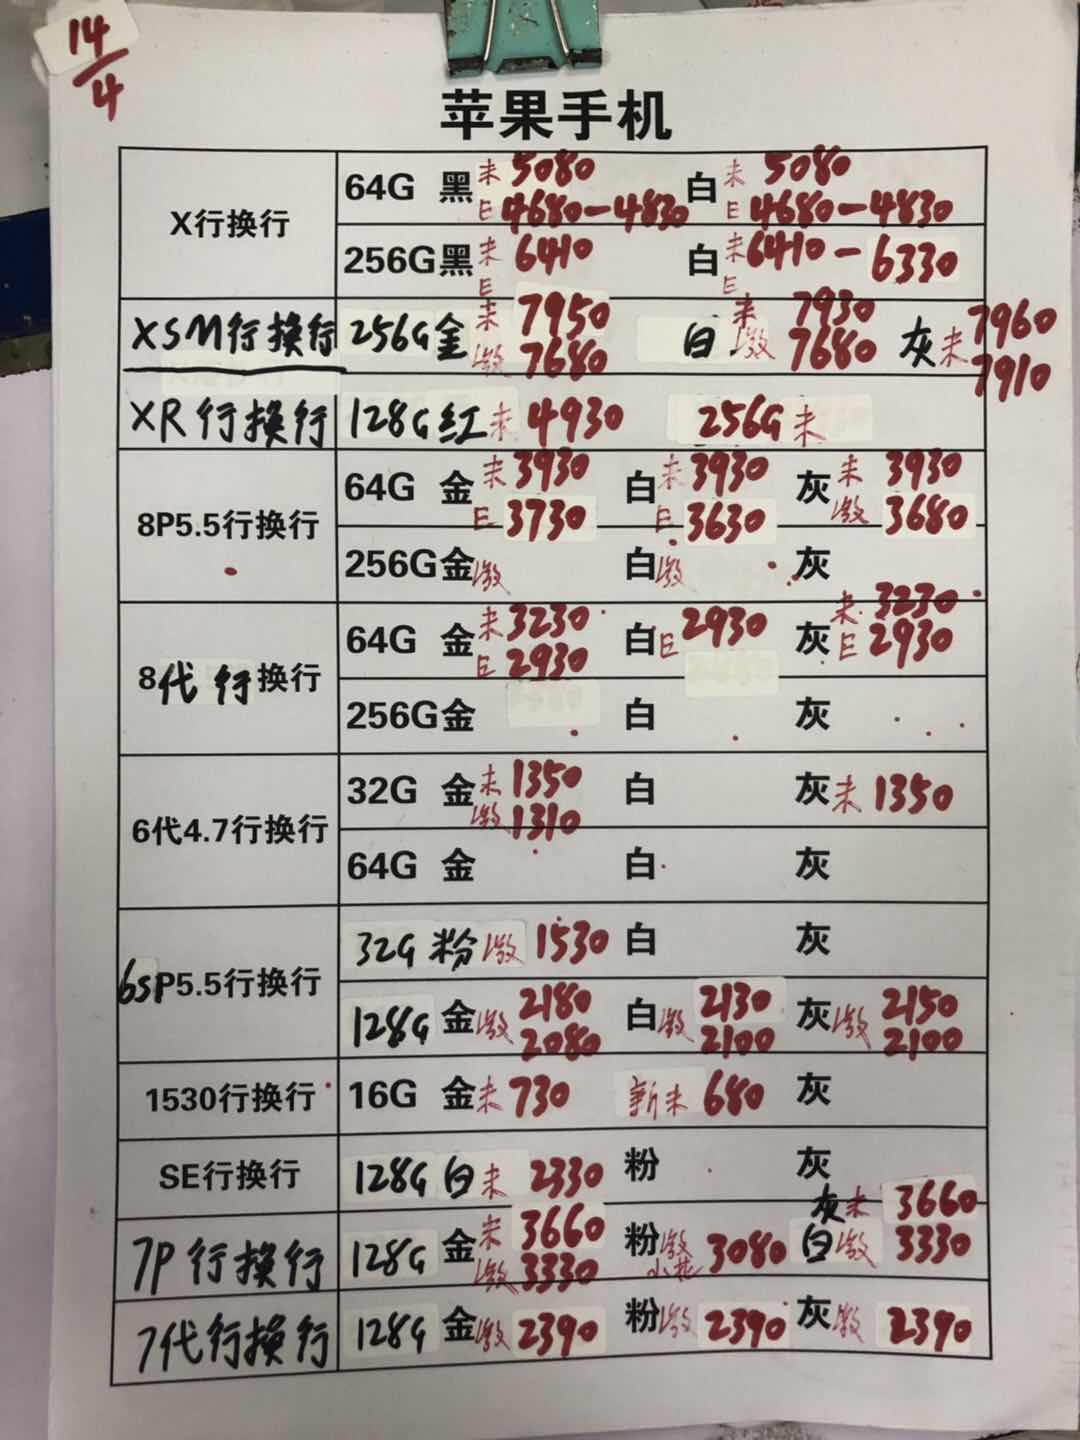 14/4
苹果手机
X行换行 64G 黑 未 5080 白 未 5080
E 4680-4830 E 4680-4830
256G黑 未 6410 白 未 6410-6330
E E
XSM行换行 256G金 未 7950 白 未 7930 灰 未 7960
激 7680 激 7680 7910
XR行换行 128G 红 未 4930 256G 未
8P5.5行换行 64G 金 未 3930 白 未 3930 灰 未 3930
E 3730 E 3630 激 3680
256G金 激 白 激 灰
8代行换行 64G 金 未 3230 白 E 2930 灰 未 3230
E 2930 E 2930
256G金 白 灰
6代4.7行换行 32G 金 未 1350 白 灰 未 1350
激 1310
64G 金 白 灰
6SP5.5行换行 32G 粉 激 1530 白 灰
128G 金 激 2180 白 激 2130 灰 激 2150
2080 2100 2100
1530行换行 16G 金 未 730 新未 680 灰
SE行换行 128G 白 未 2330 粉 灰
7P行换行 128G 金 未 3660 粉 激 3080 灰 未 3660
激 3330 小花 白 激 3330
7代行换行 128G 金 激 2390 粉 激 2390 灰 激 2390